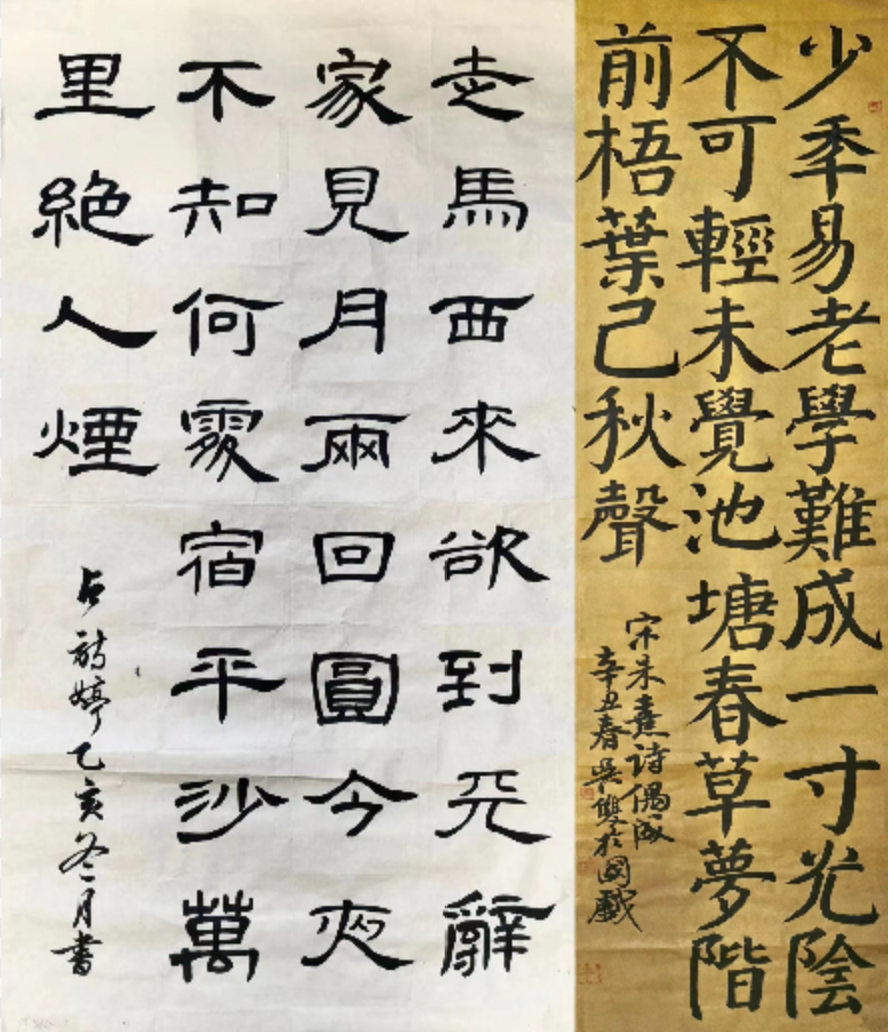 少秊易老學難成一寸光陰
不可輕未覺池塘春草夢階
前梧葉己秋聲
宋朱熹诗偶成
辛丑春吴雙於國戲
走馬西來欲到天辭
家見月兩回圓今夜
不知何處宿平沙萬
里絶人煙
占婷乙亥冬一月書